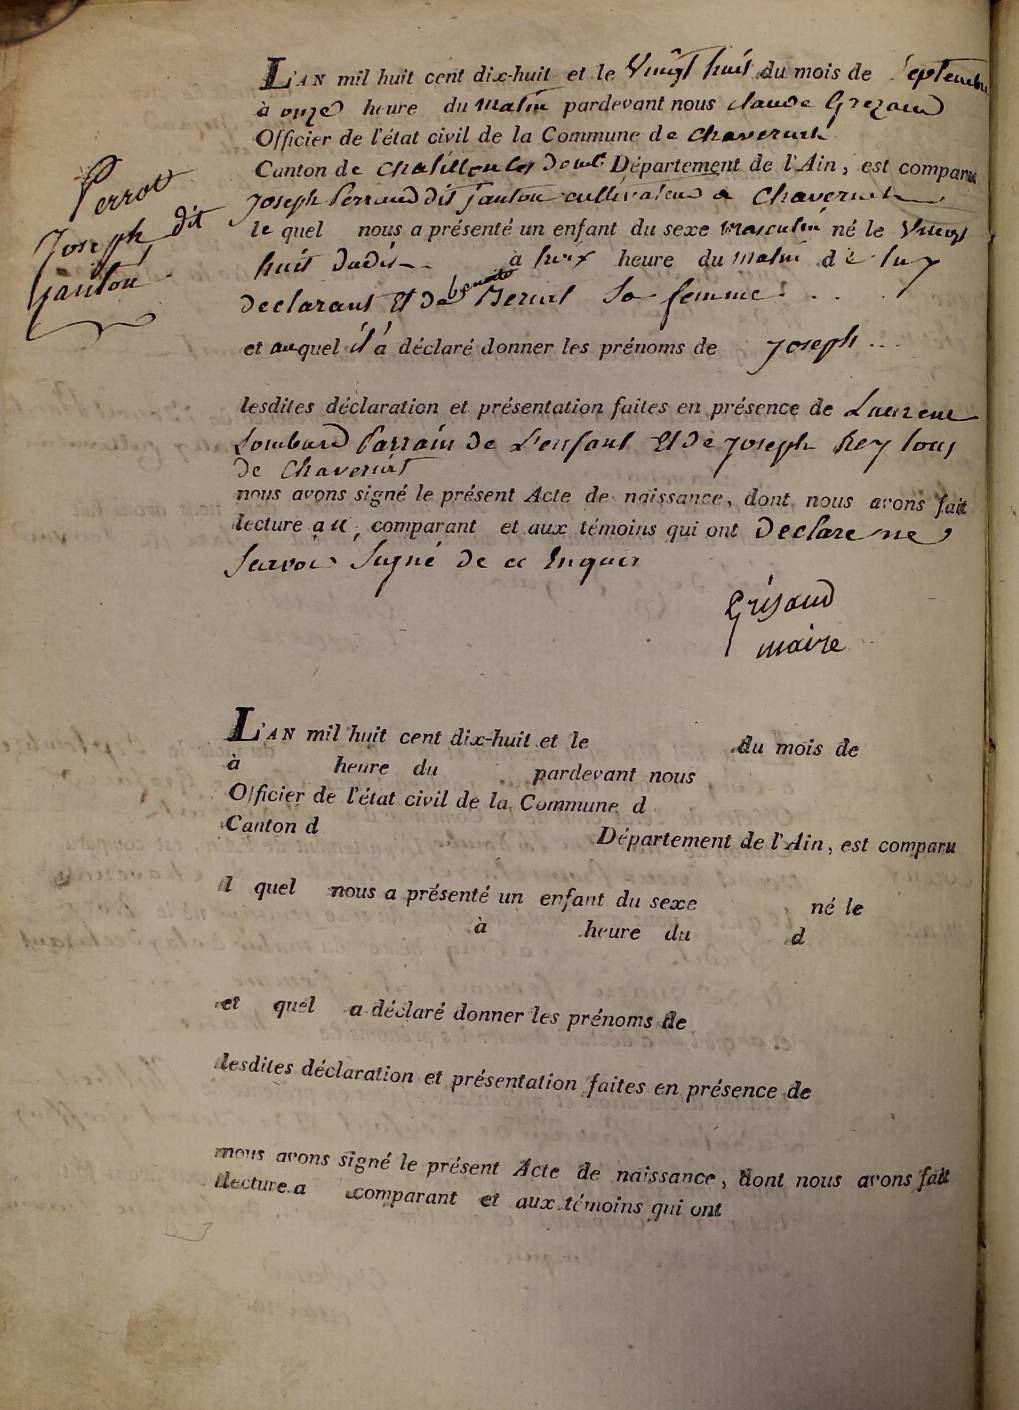 Perrot
Joseph dit
Janton
L'AN mil huit cent dix-huit et le Vingt huit du mois de Septembre
à onze heure du matin pardevant nous claude Grezaud
Officier de l'état civil de la Commune de
Canton de Département de l'Ain, est comparu
Joseph Perraud dit Janton cultivateur a
le quel nous a présenté un enfant du sexe masculin né le Vingt
huit dudit à heure du matin de luy
declarant Et de benoite sa femme
et auquel il a déclaré donner les prénoms de joseph
lesdites déclaration et présentation faites en présence de Laurent
Lombard Parrain de L'enfant Et de joseph Rey tous
de
nous avons signé le présent Acte de naissance, dont nous avons fait
lecture au comparant et aux témoins qui ont declare ne
Savoir Signé de ce Enquis
Grisaud
maire
L'AN mil huit cent dix-huit et le du mois de
à heure du pardevant nous
Officier de l'état civil de la Commune d
Canton d Département de l'Ain, est comparu
l quel nous a présenté un enfant du sexe né le
à heure du d
et quel a déclaré donner les prénoms de
lesdites déclaration et présentation faites en présence de
nous avons signé le présent Acte de naissance, dont nous avons fait
lecture a comparant et aux témoins qui ont